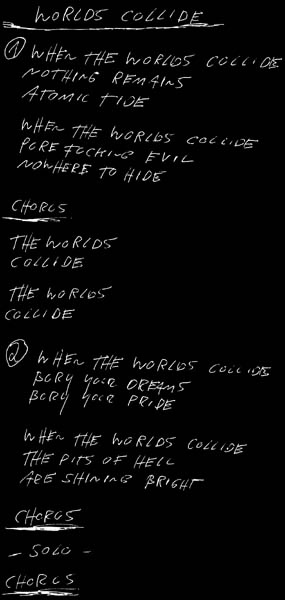 WORLDS COLLIDE
1 WHEN THE WORLDS COLLIDE
NOTHING REMAINS
ATOMIC TIDE
WHEN THE WORLDS COLLIDE
PURE FUCKING EVIL
NOWHERE TO HIDE
CHORUS
THE WORLDS
COLLIDE
THE WORLDS
COLLIDE
2 WHEN THE WORLDS COLLIDE
BURY YOUR DREAMS
BURY YOUR PRIDE
WHEN THE WORLDS COLLIDE
THE PITS OF HELL
ARE SHINING BRIGHT
CHORUS
- SOLO -
CHORUS